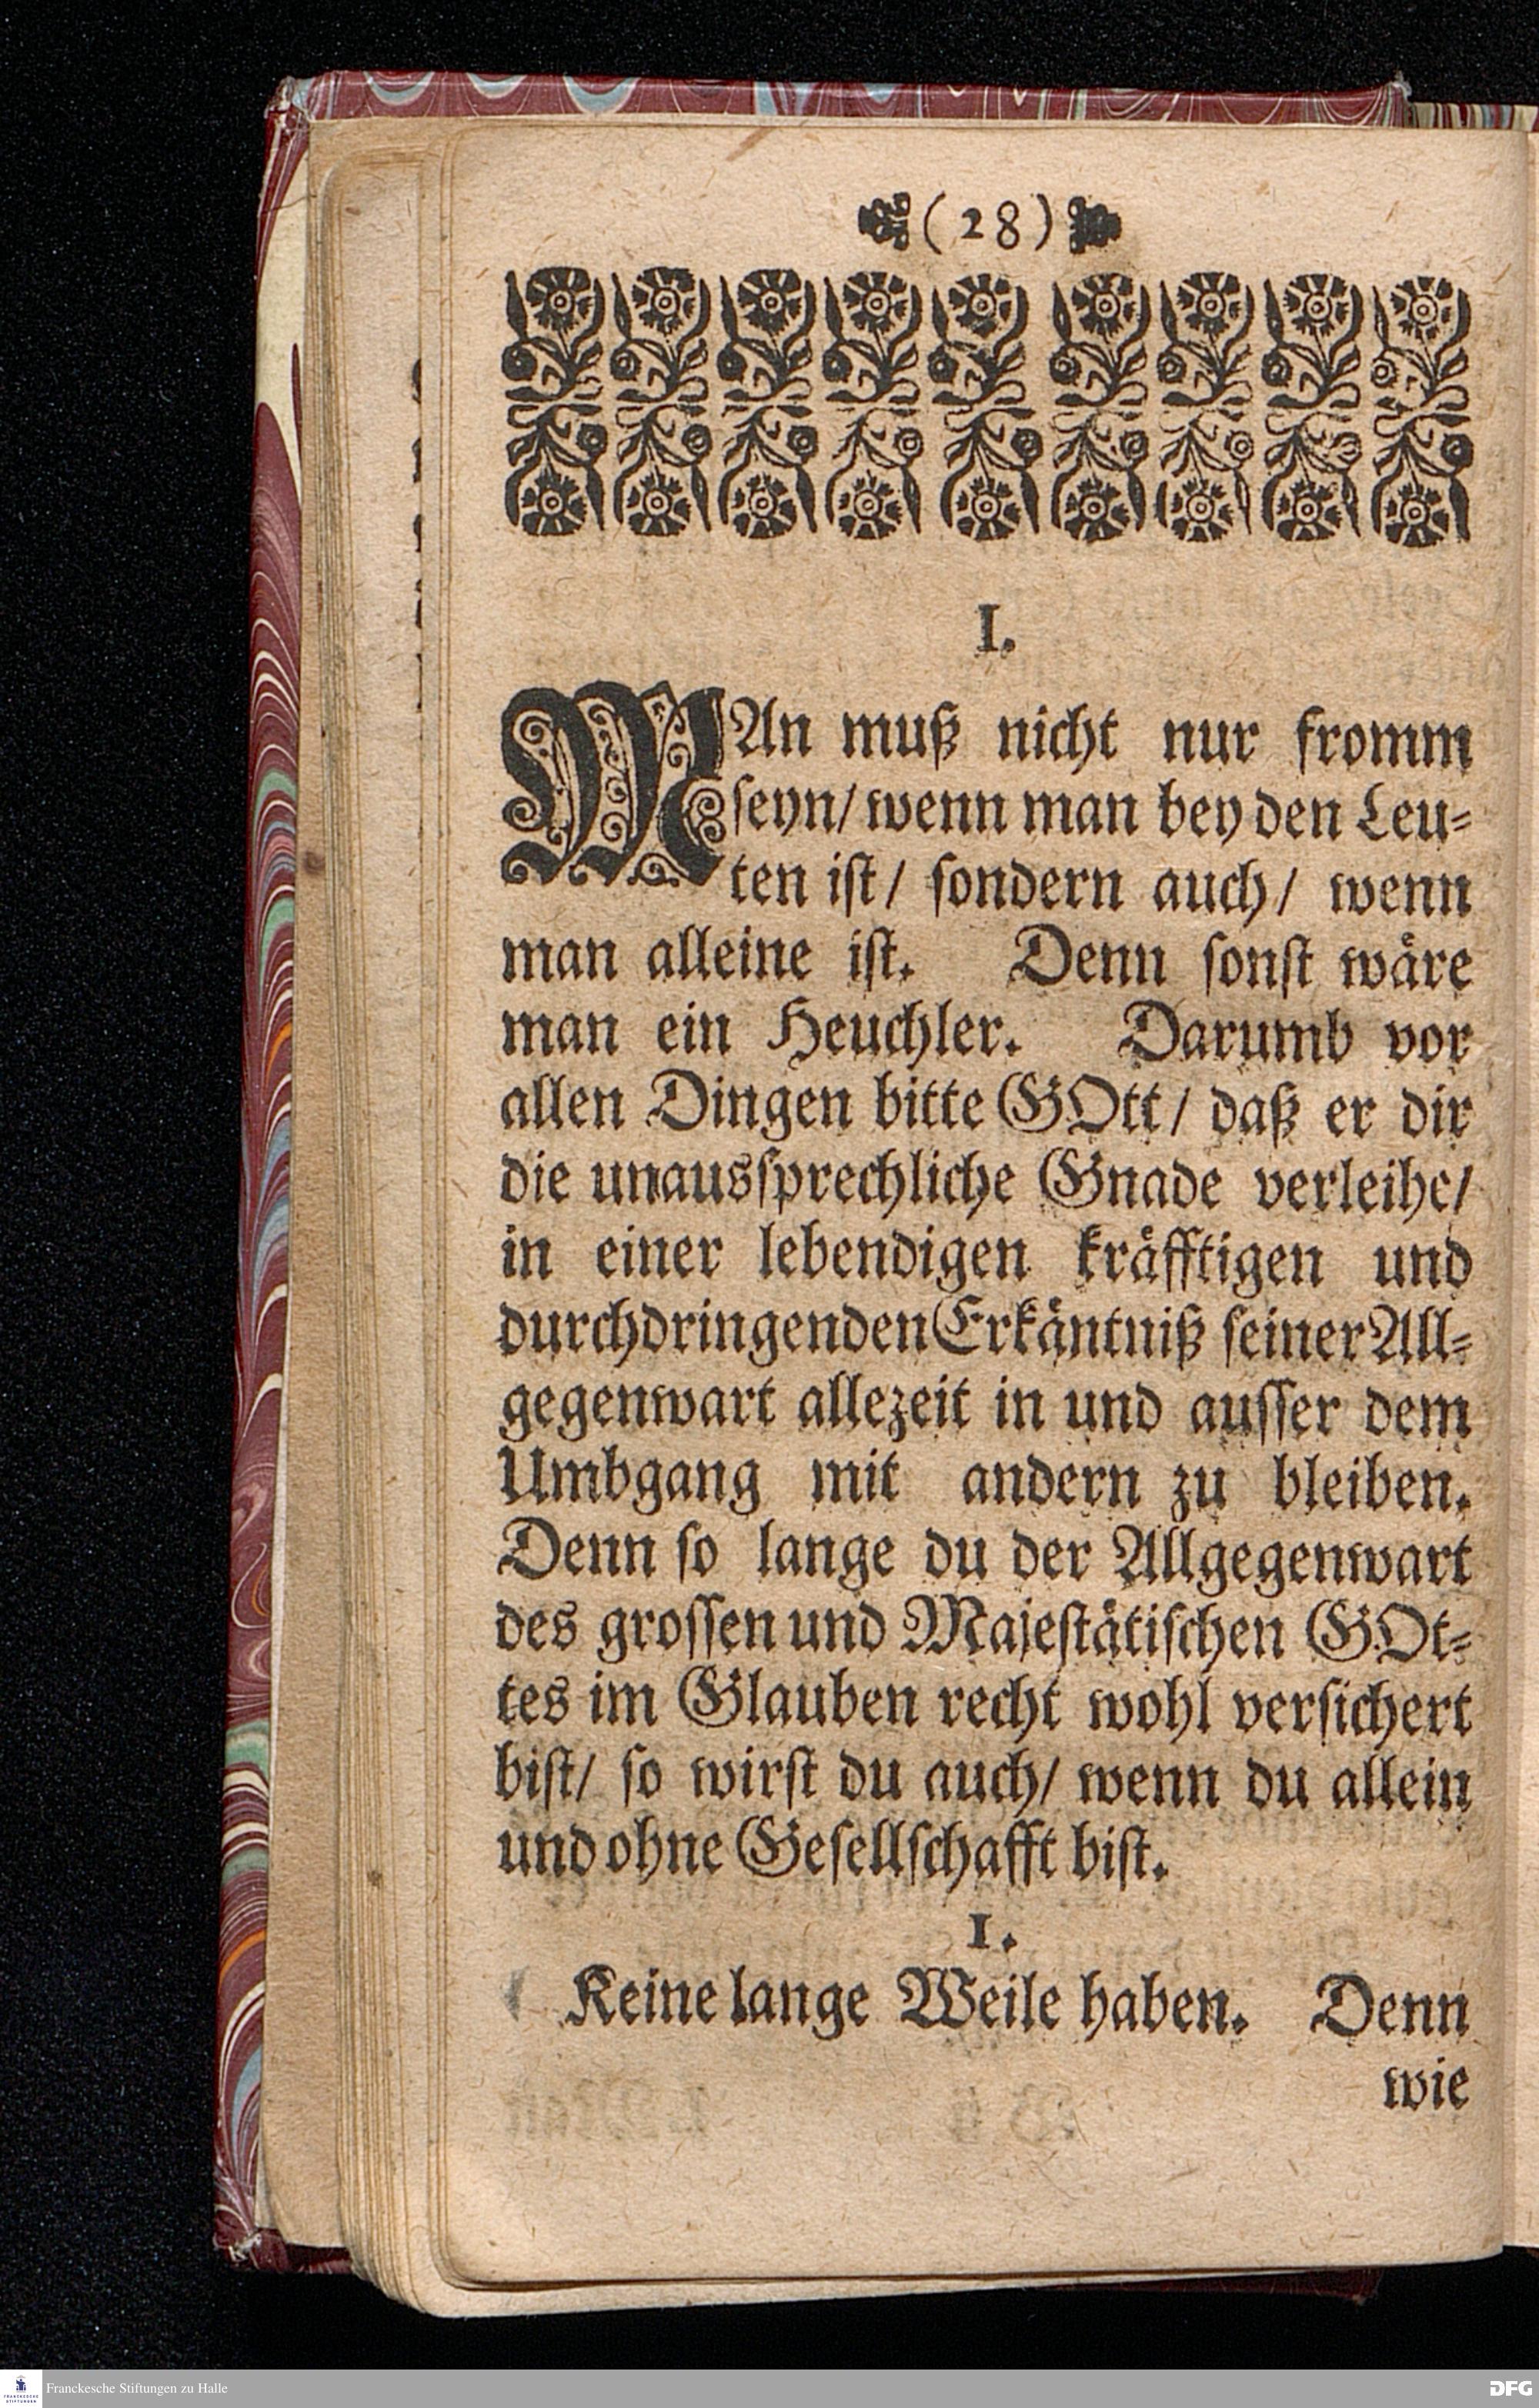 (28)
I.
MAn muß nicht nur fromm
seyn/ wenn man bey den Leu-
ten ist/ sondern auch/ wenn
man alleine ist. Denn sonst wäre
man ein Heuchler. Darumb vor
allen Dingen bitte GOtt/ daß er dir
die unaussprechliche Gnade verleihe/
in einer lebendigen kräfftigen und
durchdringenden Erkäntniß seiner All-
gegenwart allezeit in und ausser dem
Umbgang mit andern zu bleiben.
Denn so lange du der Allgegenwart
des grossen und Majestätischen GOt-
tes im Glauben recht wohl versichert
bist/ so wirst du auch/ wenn du allein
und ohne Gesellschafft bist.
1.
Keine lange Weile haben. Denn
wie
FRANCKESCHE STIFTUNGEN
Franckesche Stiftungen zu Halle
DFG